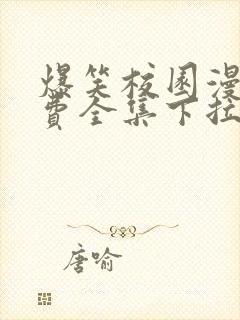 爆笑校园漫
费全集下拉
唐喻